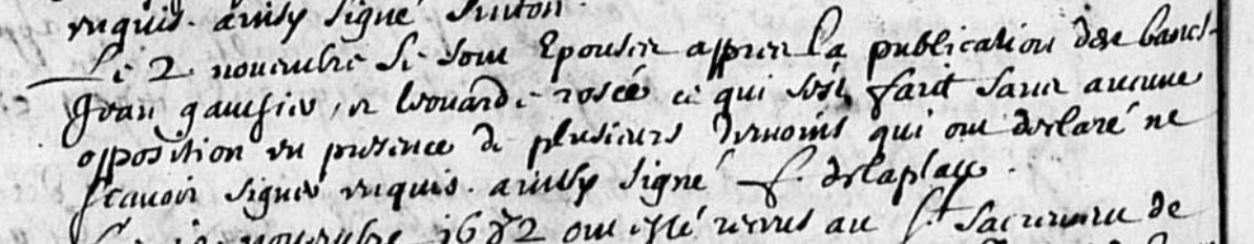 requis. ainsy signé
Le 2 novembre se sont Epousés apprez la publication des bancs
Jean gaultier, et Leonarde rosée ce qui s'est fait sans aucune
opposition en presence de plusieurs temoins qui ont declaré ne
scavoir signer requis. ainsy signé f. delaplace.
novembre 1682 ont esté receus au St Sacrement de